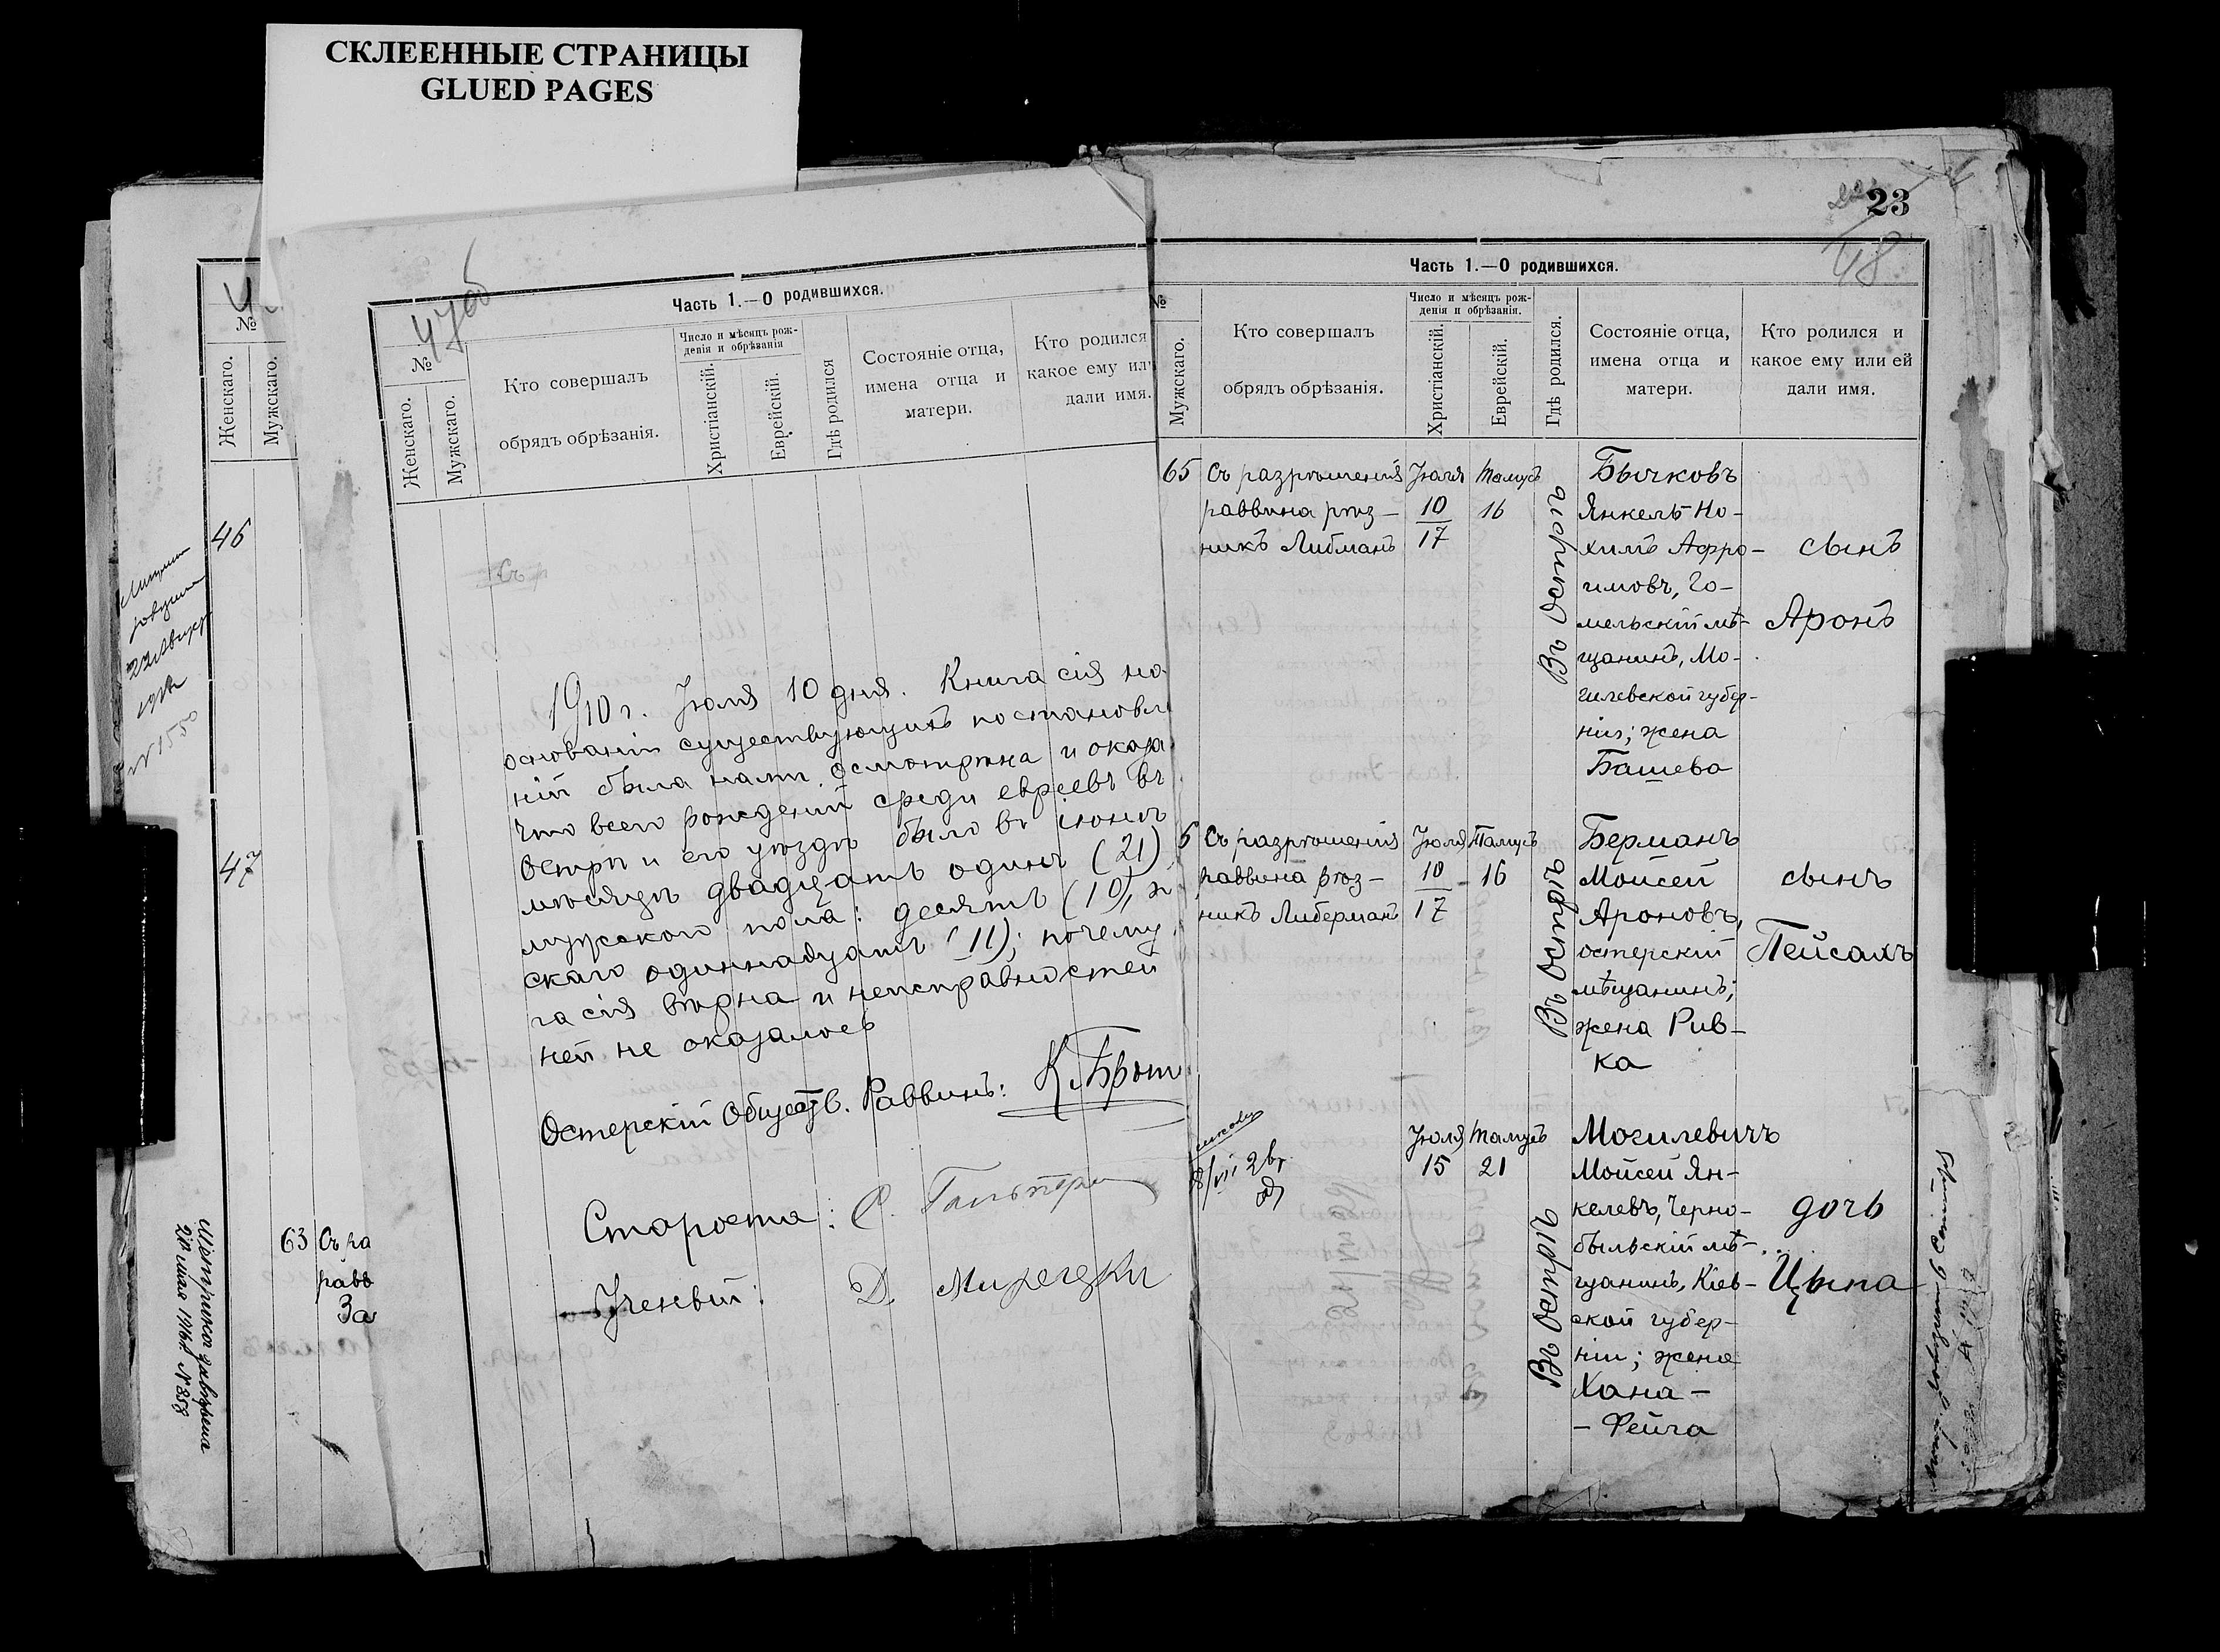 СКЛЕЕННЫЕ СТРАНИЦЫ
GLUED PAGES
№
Женскаго.
Мужскаго.
46
47
63 Съ ра
равв
За
28 мая 1916 г. № 353
47об
Часть 1.—О родившихся.
№
Женскаго.
Мужскаго.
Кто совершалъ
обрядъ обрѣзанія.
Число и мѣсяцъ рож-
денія и обрѣзанія
Христіанскій.
Еврейскій.
Гдѣ родился
Состояніе отца,
имена отца и
матери.
Кто родился
какое ему ил
дали имя.
1910 г. Іюля 10 дня. Книга сія на
основаніи существующихъ постановле
ній была нами осмотрѣна и оказа
что всего рожденій среди евреевъ въ
Острѣ и его уѣздѣ было въ іюнѣ
мѣсяцѣ двадцать одинъ (21),
мужского пола: десять (10), ж
скаго одиннадцать (11); почему
га сія вѣрна и неисправностей
ней не оказалось
Остерскій Обществ. Раввинъ: К. Брот
Староста: С. Гальперн
Ученый: Д.
23
48
Часть 1.—О родившихся.
№
Мужскаго.
Кто совершалъ
обрядъ обрѣзанія.
Число и мѣсяцъ рож-
денія и обрѣзанія.
Христіанскій.
Еврейскій.
Гдѣ родился.
Состояніе отца,
имена отца и
матери.
Кто родился и
какое ему или ей
дали имя.
65 Съ разрѣшенія
раввина рѣз-
никъ Либманъ
Іюля
10
17
Тамузъ
16
Въ Острѣ
Бычковъ
Янкель-Но-
химъ Афро-
имовъ, Го-
мельскій мѣ-
щанинъ, Мо-
гилевской губер-
ніи; жена
Башева
сынъ
Аронъ
6 Съ разрѣшенія
раввина рѣз-
никъ Либерманъ
Іюля
10
17
Тамузъ
16
Въ Острѣ
Берманъ
Мойсей
Ароновъ,
остерскій
мѣщанинъ;
жена Рив-
ка
сынъ
Пейсахъ
Іюля
15
Тамузъ
21
Въ Острѣ
Могилевичъ
Мойсей Ян-
келевъ, Черно-
быльскій мѣ-
щанинъ, Кіев-
ской губер-
ніи; жена
Хана-
- Фейга
дочь
Цыпа